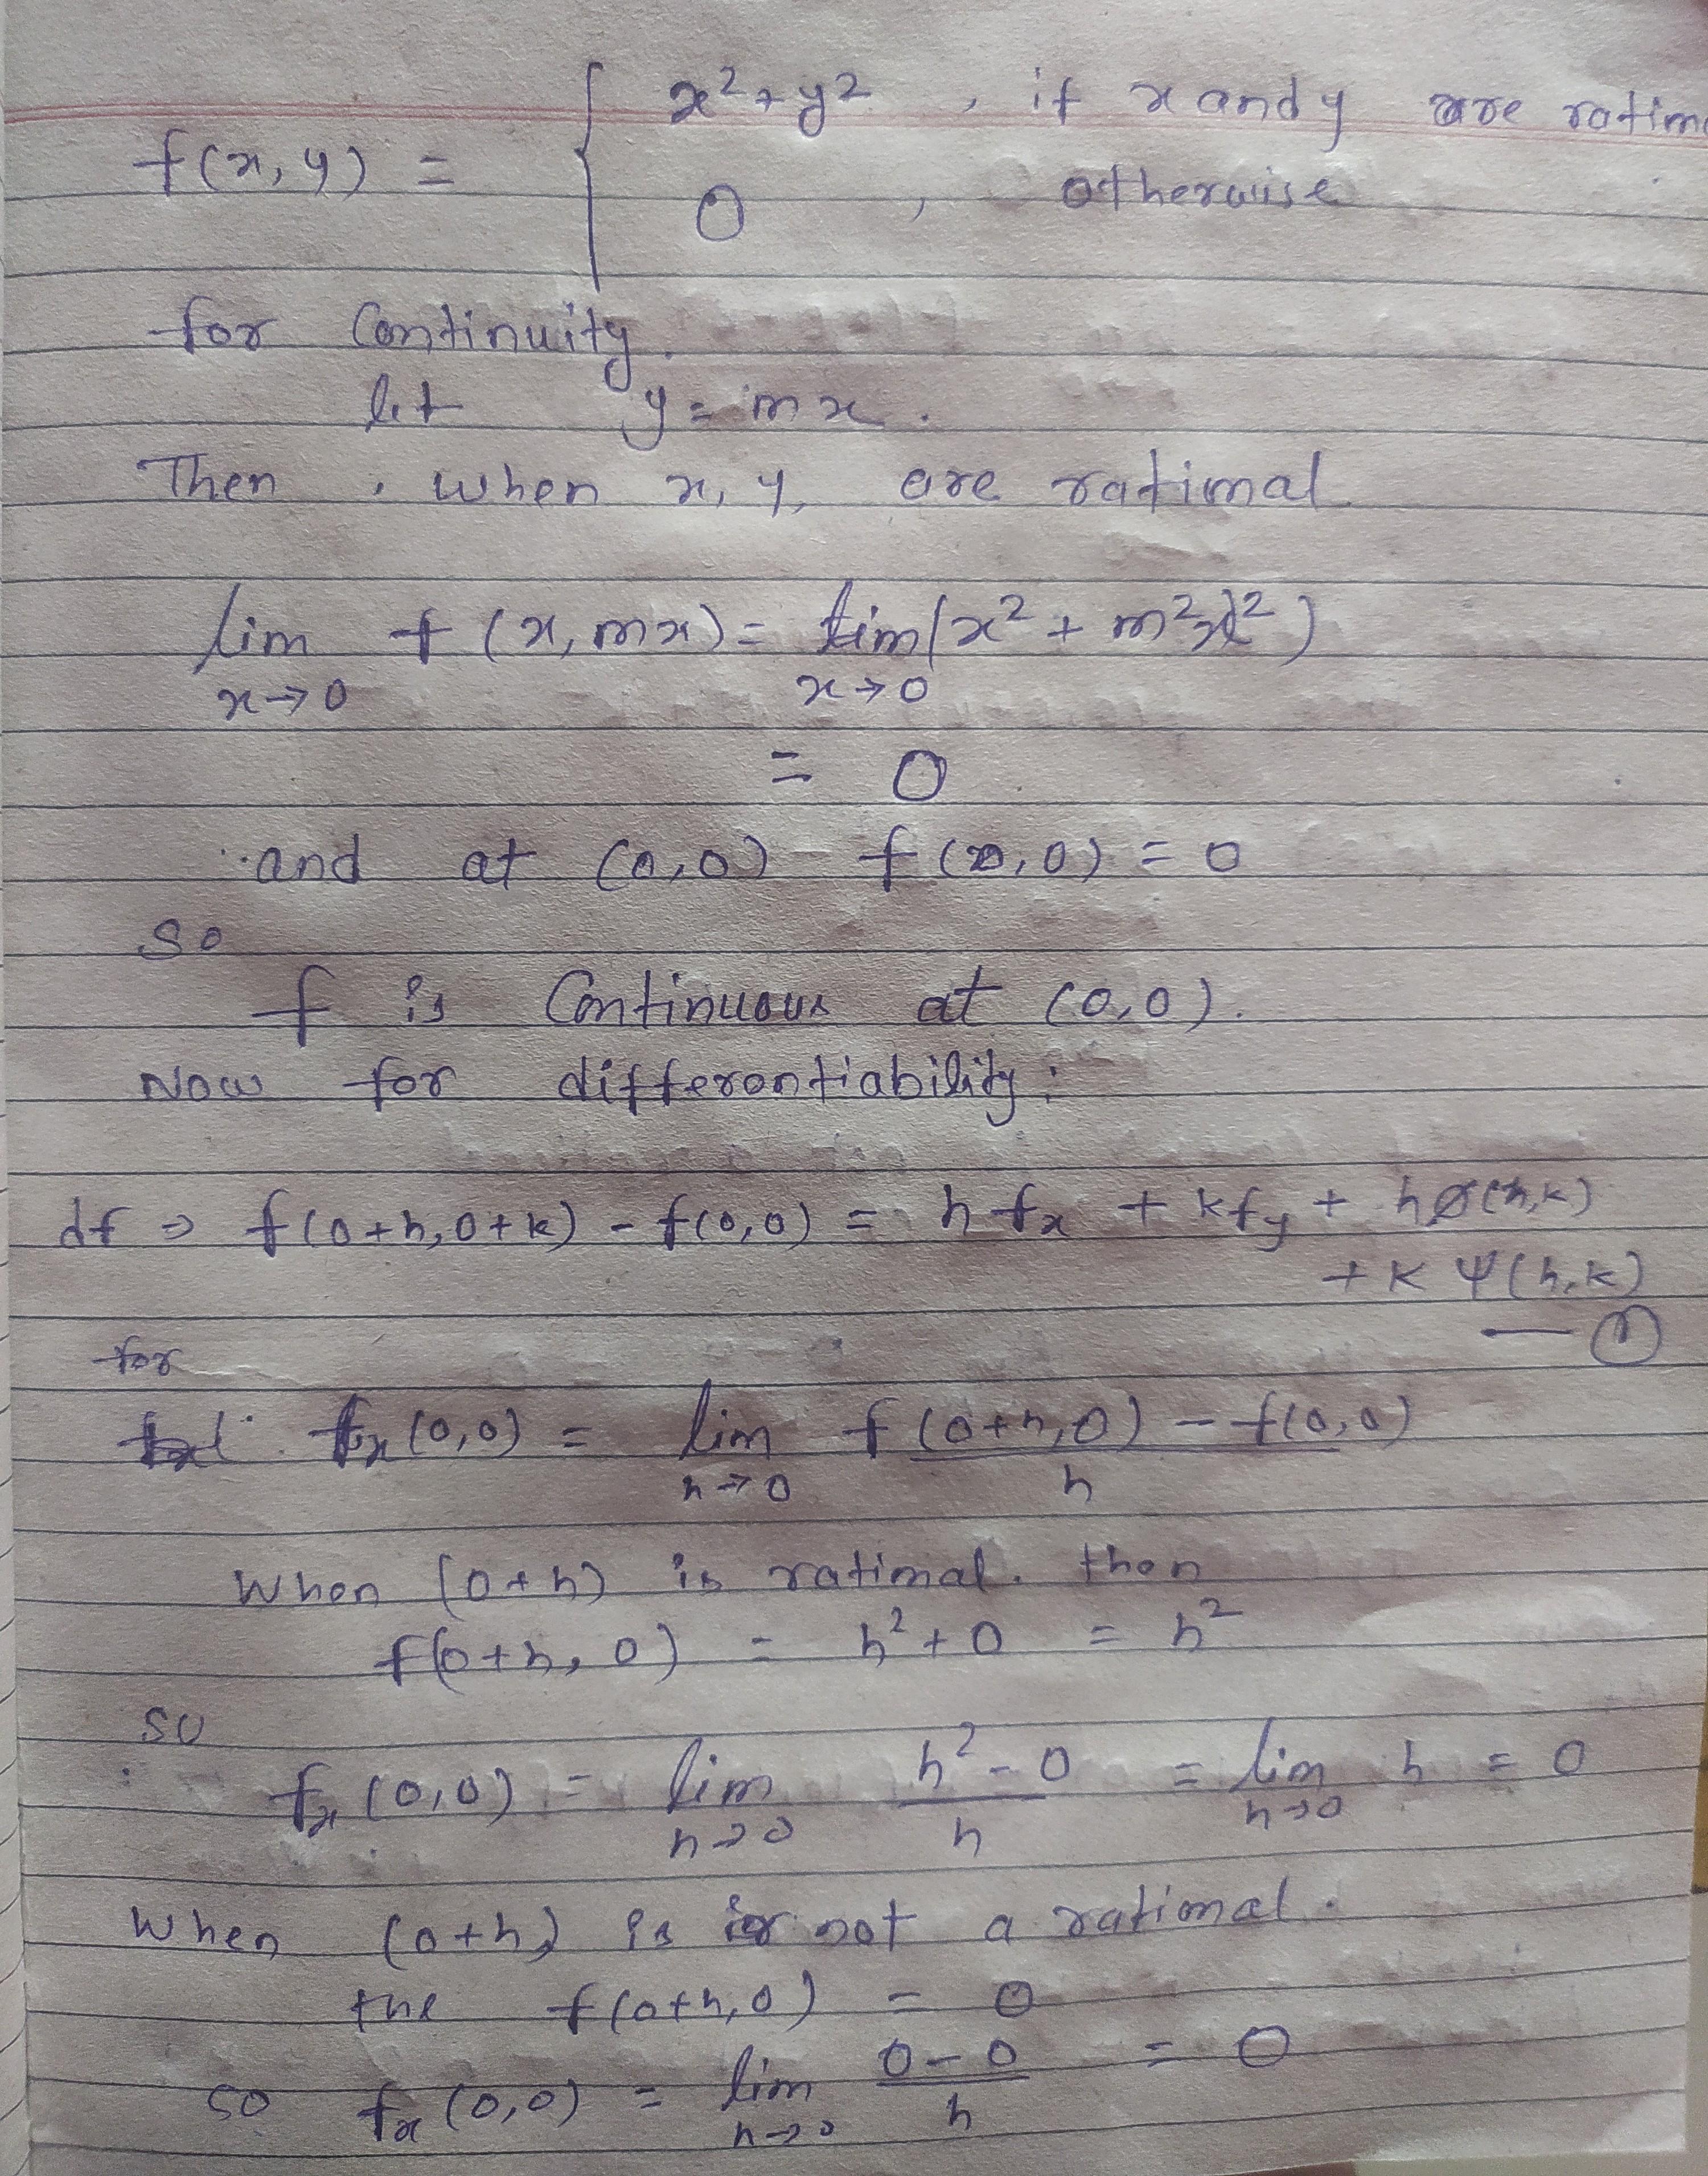 f(x,y) = { x²+y² , if x and y are
0 , otherwise
for Continuity.
let y = mx.
Then , when x, y, are rational
lim x→0 f(x,mx) = lim x→0 (x² + m²x²)
= 0
and at (0,0) f(0,0) = 0
so
f is Continuous at (0,0).
Now for differentiability:
df ⇒ f(0+h,0+k) - f(0,0) = h fx + k fy + hφ(h,k)
+ k ψ(h,k)
— ①
for
fx(0,0) = lim h→0 f(0+h,0) - f(0,0) / h
When (0+h) is rational. then
f(0+h, 0) = h²+0 = h²
so
fx(0,0) = lim h→0 h²-0 / h = lim h→0 h = 0
When (0+h) is not a rational.
the f(0+h,0) = 0
so fx(0,0) = lim h→0 0-0 / h = 0